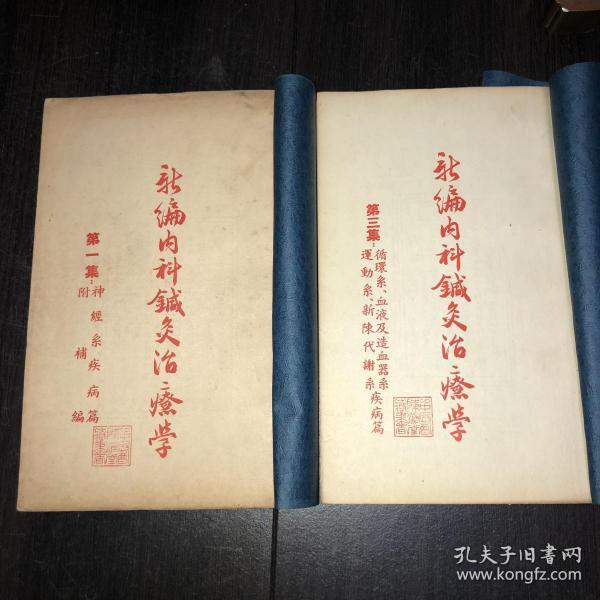 新編內科鍼灸治療学
第一集:神經系疾病篇
附補編
新編內科鍼灸治療学
第三集:循環系、血液及造血器系
運動系、新陳代謝系疾病篇
孔夫子旧书网
www.kongfz.com